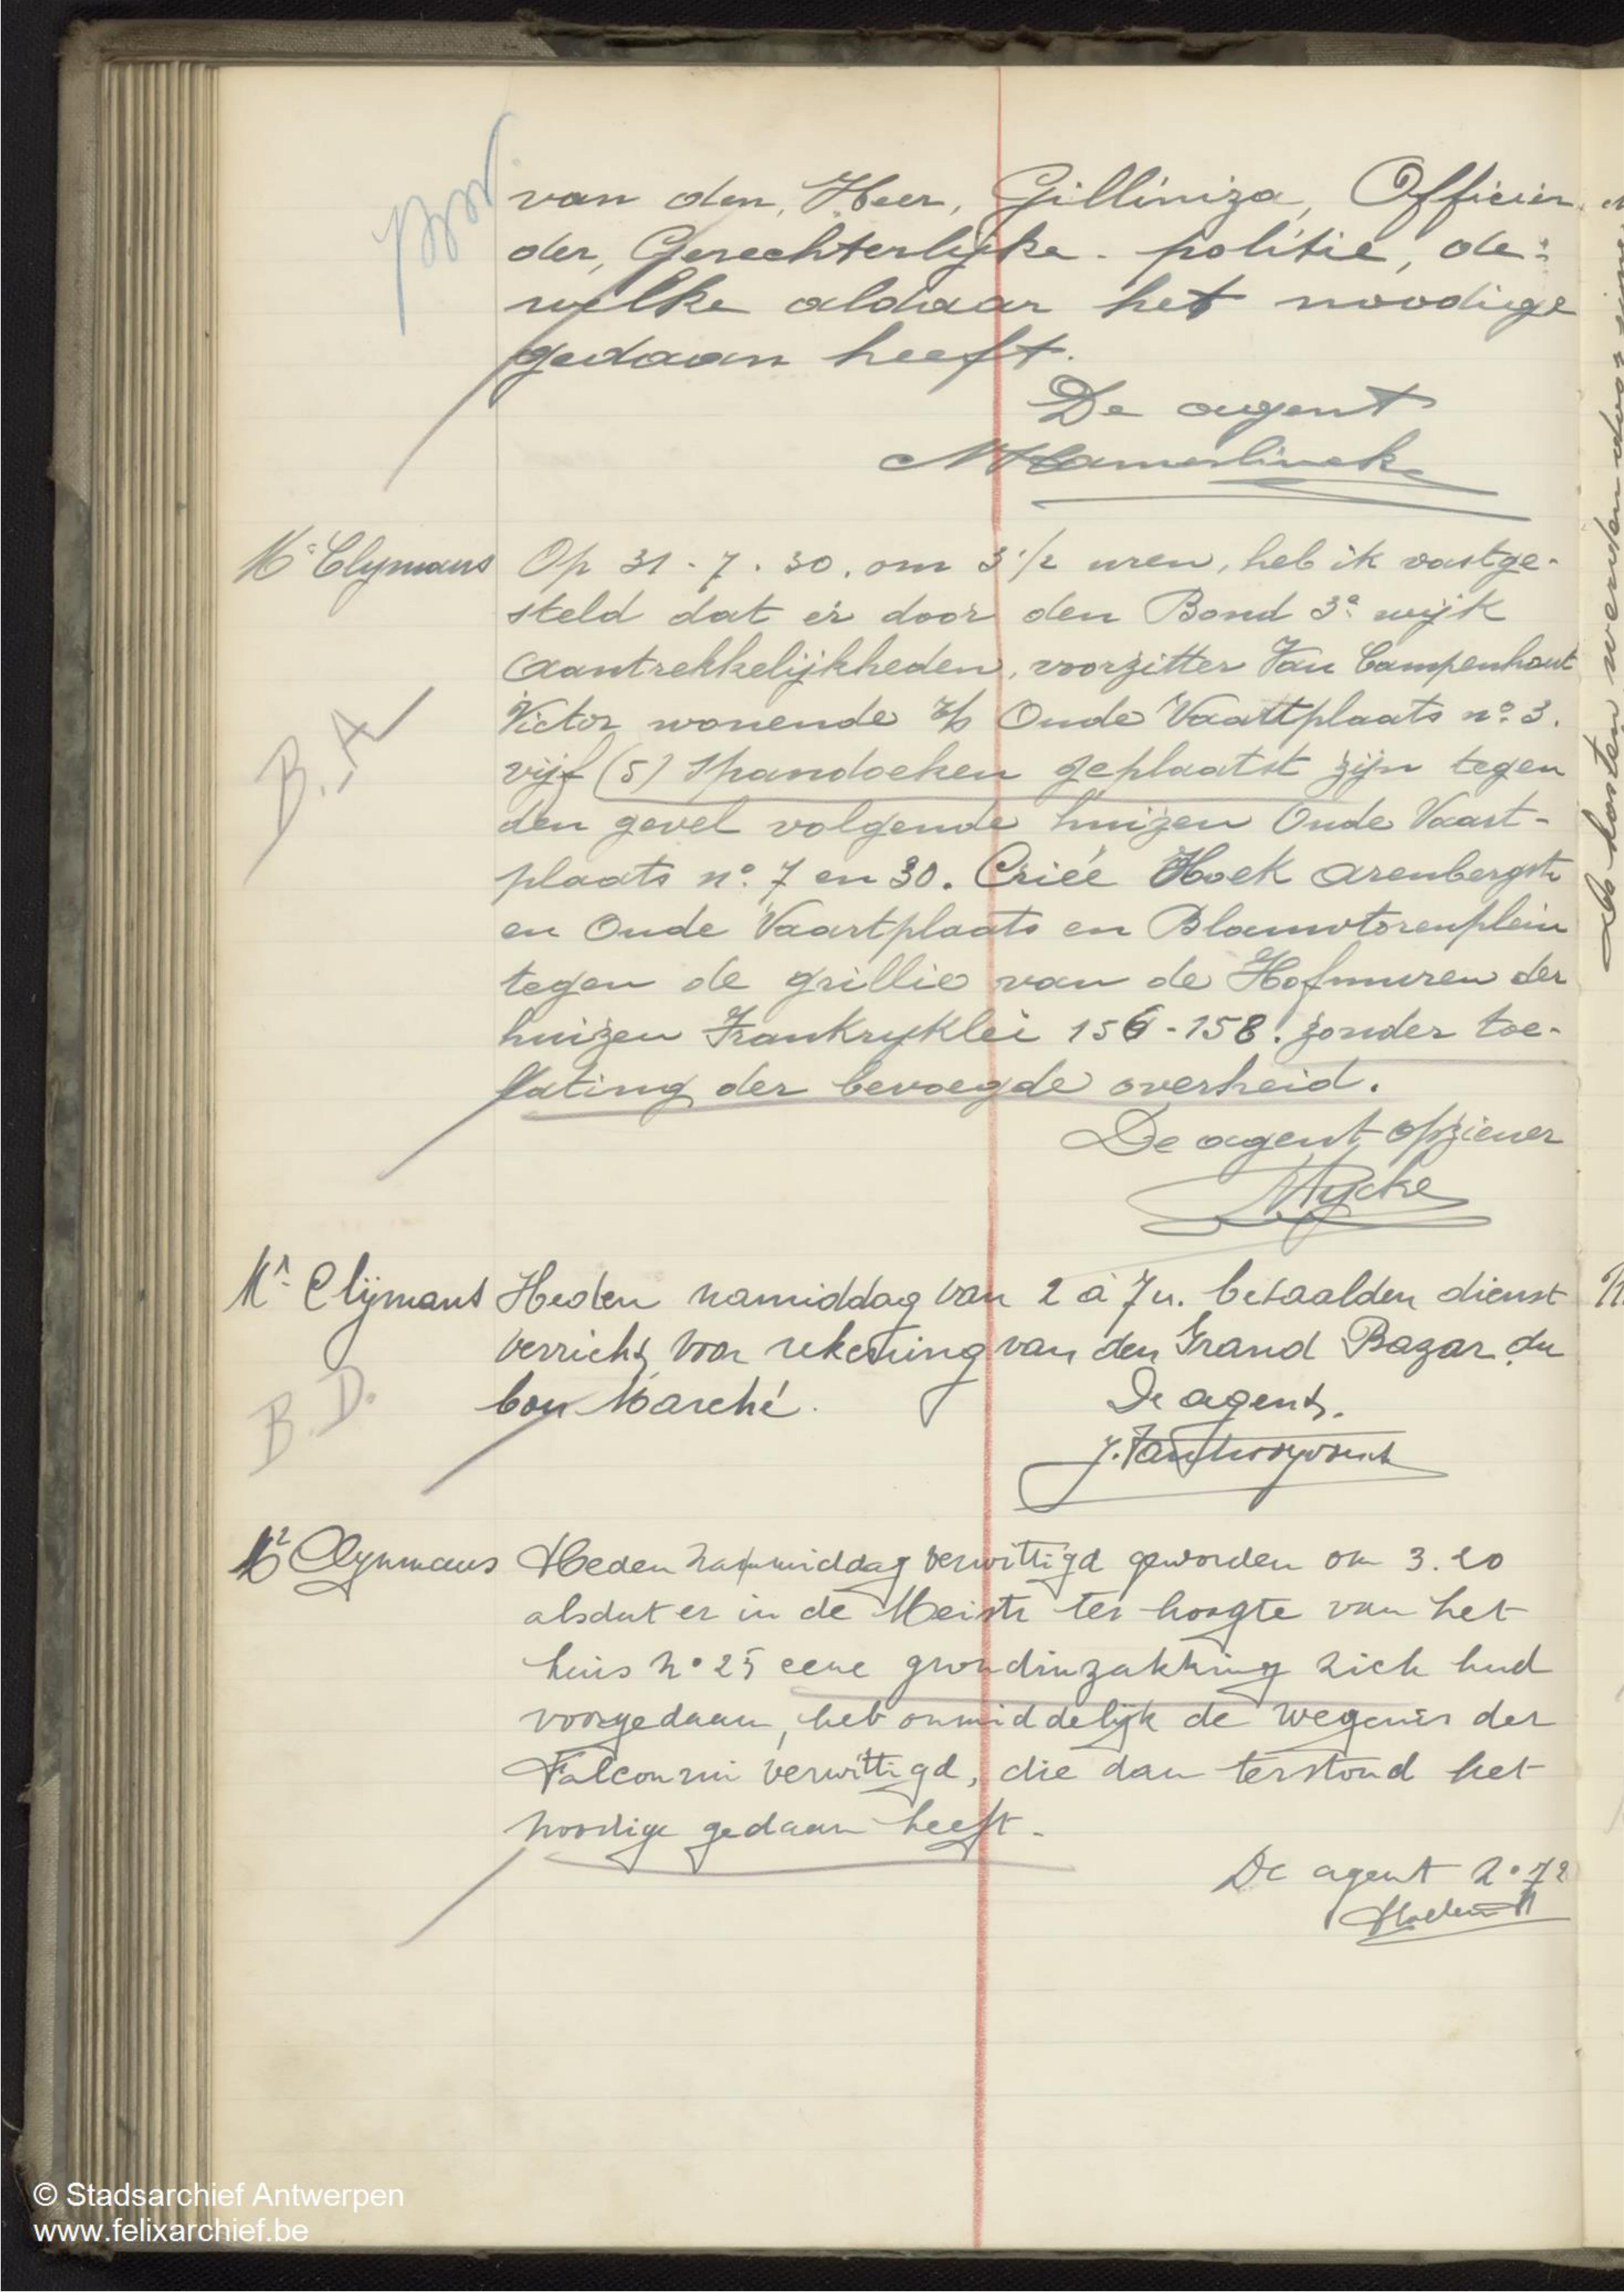 van den, Heer, Gilliniza, Officier
der, Gerechterlijke - politie, de-
welke aldaar het noodige
gedaan heeft.
De agent
Mr Clymans
Op 31 - 7 . 30 . om 3 1/2 uren, heb ik vastge-
steld dat er door den Bond 3e wijk
aantrekkelijkheden, voorzitter Van Campenhout
Victor wonende Oude Vaartplaats n° 3.
B.A
vijf (5) spandoeken geplaatst zijn tegen
den gevel volgende huizen Oude Vaart-
plaats n° 7 en 30. Criée Hoek Arenbergstr
en Oude Vaartplaats en Blauwtorenplein
tegen de grillie van de Hofmuren der
huizen Frankryklei 156-158. zonder toe-
lating der bevoegde overheid.
De agent opziener
Mr Clijmans
Heden namiddag van 2 à 7 u. betaalden dienst
verricht voor rekening van den Grand Bazar du
bon Marché.
B.D.
De agent.
Mr Clymans
Heden namiddag verwittigd geworden om 3.20
alsdat er in de Meistr ter hoogte van het
huis n° 25 eene grondinzakking zich had
voorgedaan, heb onmiddelijk de wegenis der
Falconrui verwittigd, die dan terstond het
noodige gedaan heeft.
De agent
© Stadsarchief Antwerpen
www.felixarchief.be